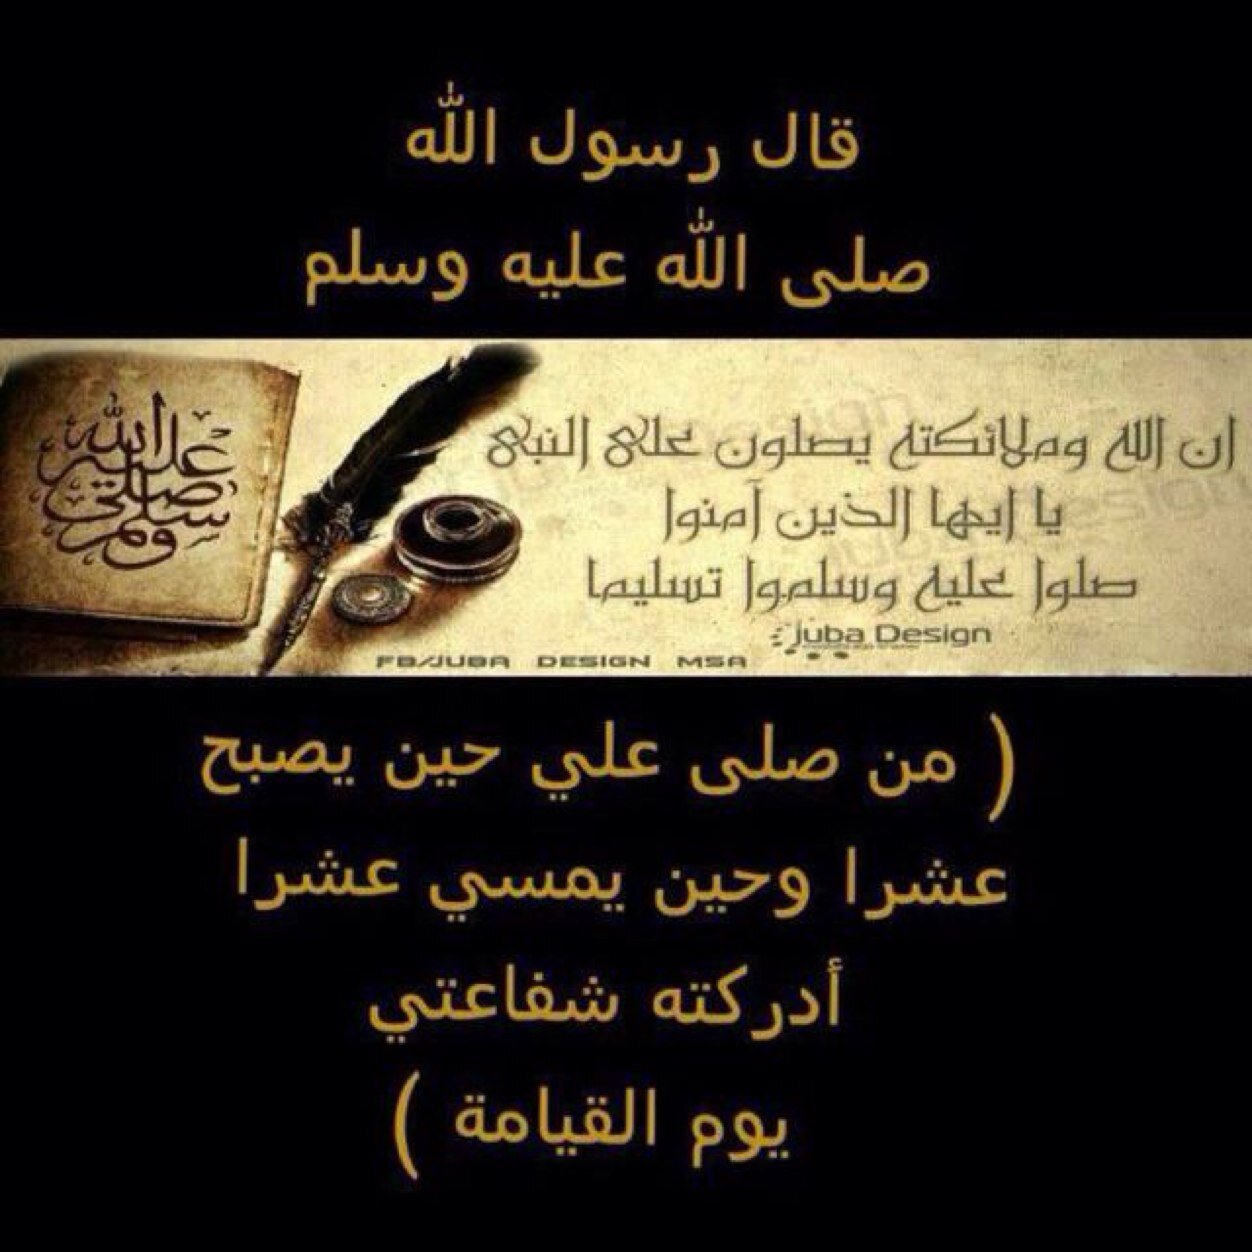 قال رسول الله
صلى الله عليه وسلم
صلى الله عليه وسلم
ان الله وملائكته يصلون على النبى
يا ايها الذين آمنوا
صلوا عليه وسلموا تسليما
Juba Design
FB/JUBA DESIGN MSA
( من صلى علي حين يصبح
عشرا وحين يمسي عشرا
أدركته شفاعتي
يوم القيامة )